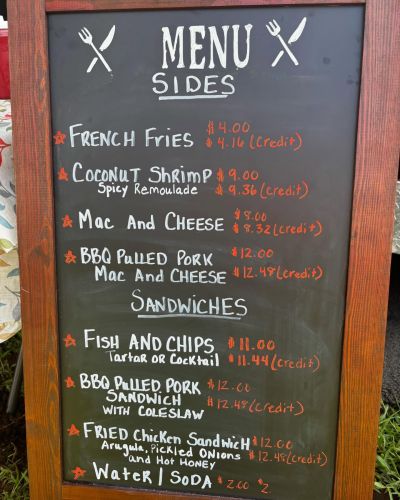 MENU
SIDES
FRENCH FRIES $4.00
$4.16 (Credit)
COCONUT SHRIMP $9.00
Spicy Remoulade $9.36 (Credit)
MAC AND CHEESE $8.00
$8.32 (Credit)
BBQ PULLED PORK $12.00
MAC AND CHEESE $12.48 (Credit)
SANDWICHES
FISH AND CHIPS $11.00
Tartar or Cocktail $11.44 (Credit)
BBQ PULLED PORK $12.00
SANDWICH $12.48 (Credit)
WITH COLESLAW
FRIED Chicken SANDWICH $12.00
Arugula, Pickled Onions $12.48 (Credit)
and Hot HONEY
Water / SODA $2.00 $2